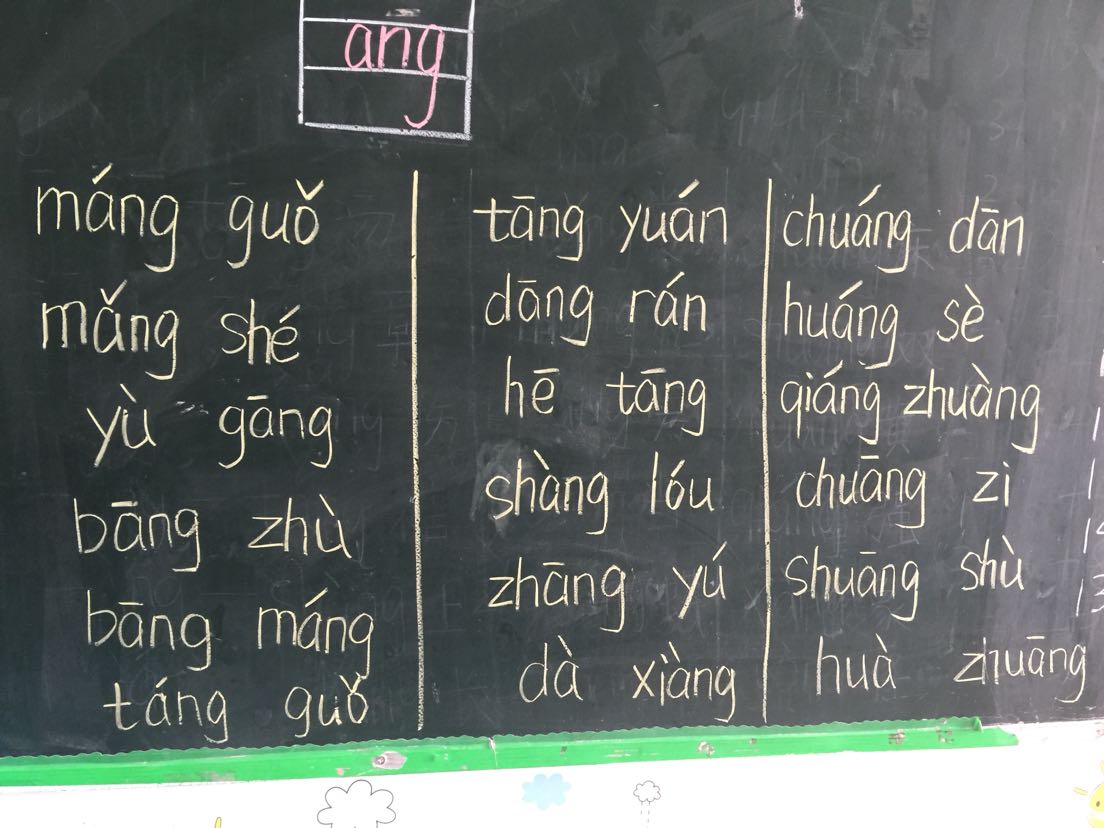 ang
máng guǒ
mǎng shé
yù gāng
bāng zhù
bāng máng
táng guǒ
tāng yuán
dāng rán
hē tāng
shàng lóu
zhāng yú
dà xiàng
chuáng dān
huáng sè
qiáng zhuàng
chuāng zi
shuāng shù
huà zhuāng